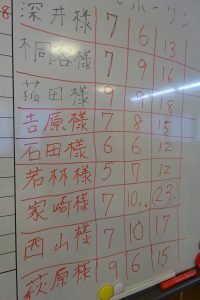 ボーリン
8
深井様 7 6 13
桐谷様 7 9 16
菰田様 9 9 18
吉原様 7 8 15
石田様 6 6 12
若林様 5 7 12
家崎様 7 10 23
西山様 7 10 17
萩原様 9 6 15